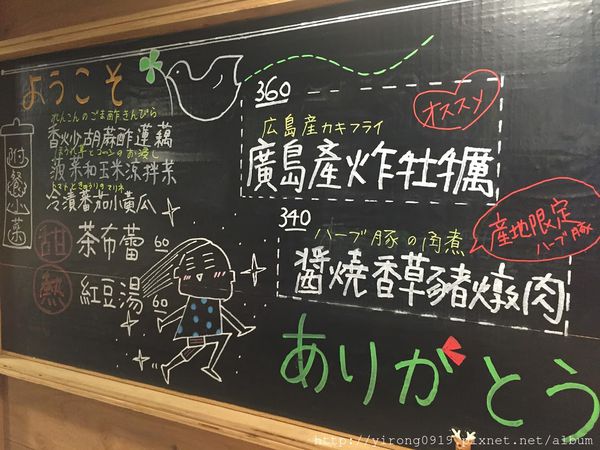 ようこそ
附餐小菜
れんこんのごま酢きんぴら
香炒胡蔴酢蓮藕
ほうれん草とコーンのお浸し
菠菜和玉米涼拌菜
トマトときゅうりのマリネ
冷漬番茄小黄瓜
甜 茶布蕾 60
熱 紅豆湯 60
360
オススメ
広島産カキフライ
廣島產炸牡蠣
340
ハーブ豚の角煮
醬燒香草豬燉肉
産地限定
ハーブ豚
ありがとう
http://yirong0919.pixnet.net/album